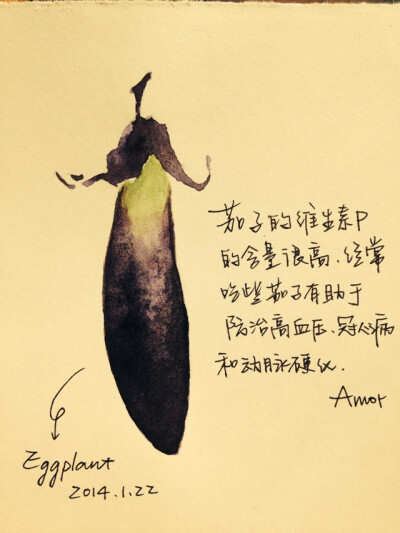 茄子的维生素P
的含量很高、经常
吃些茄子有助于
防治高血压、冠心病
和动脉硬化.
Amor
Eggplant
2014.1.22